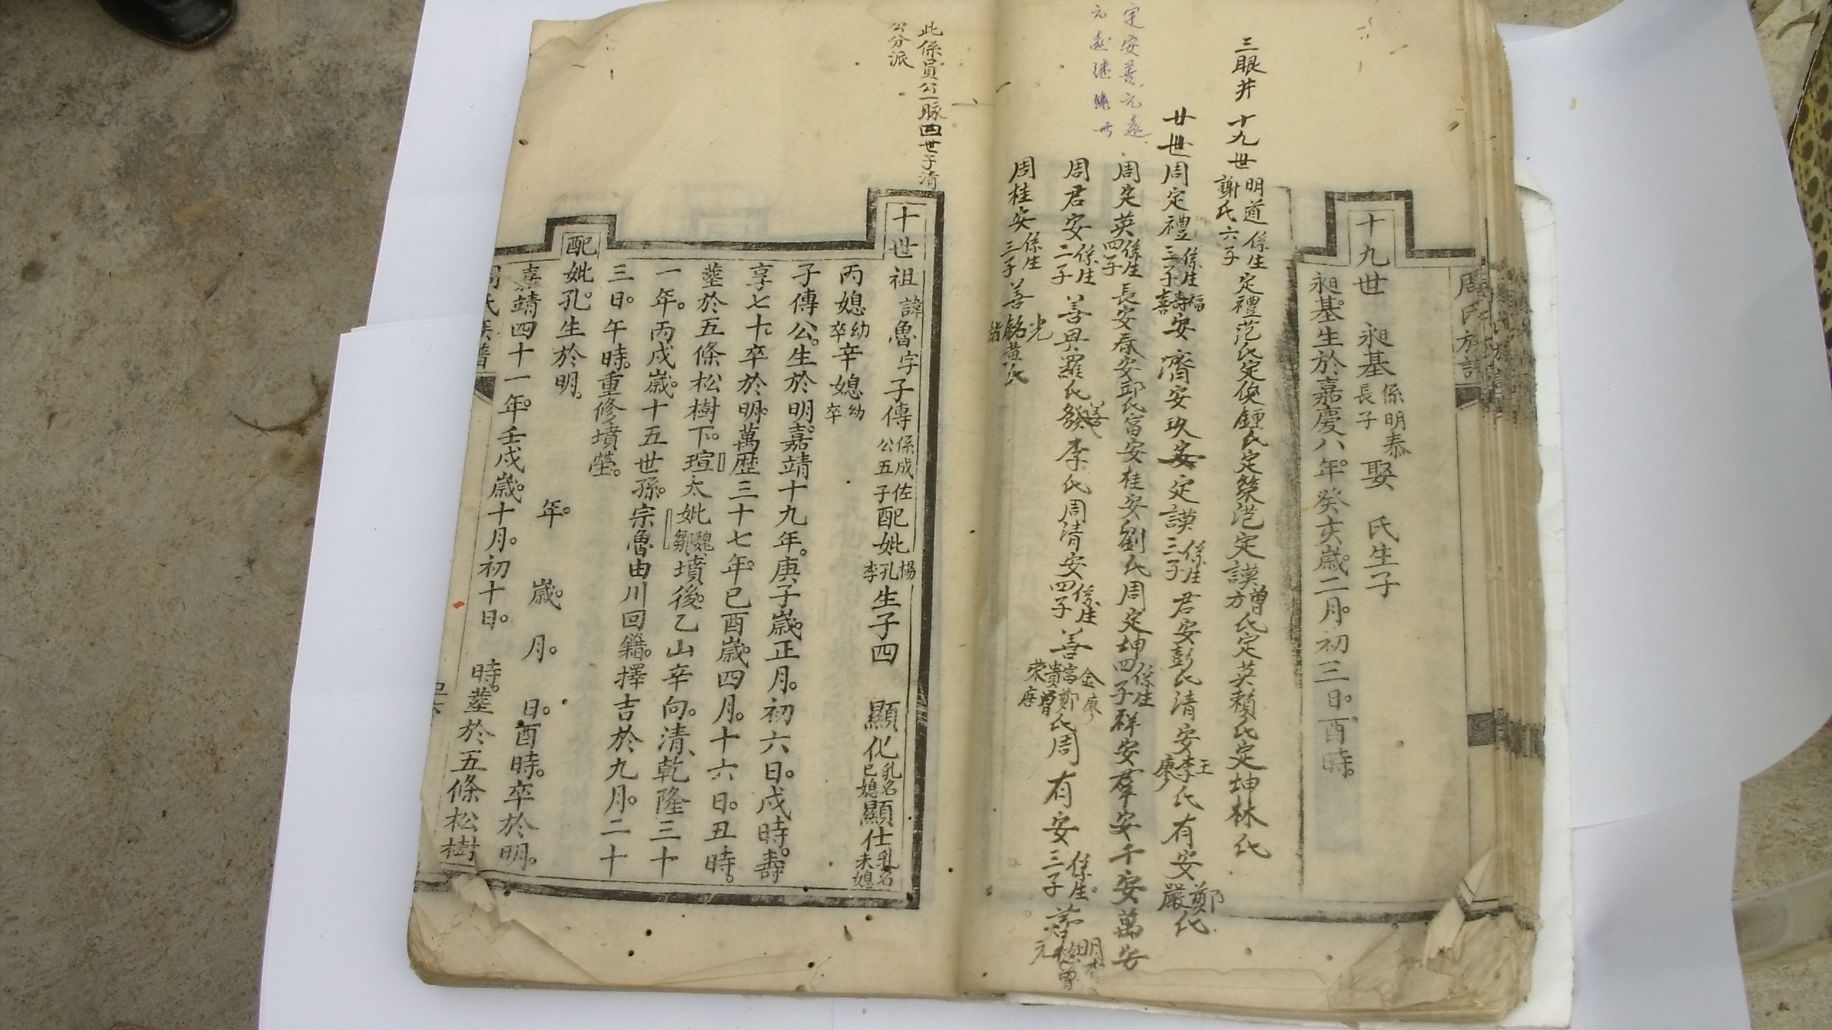 十九世 昶基係明泰長子娶 氏生子
昶基生於嘉慶八年癸亥歲二月初三日酉時
三眼井十九世明道係生謝氏六子定禮范氏定俊鍾氏定榮范定謨曾氏定英賴氏定坤林氏
廿世周定禮係生三子福壽喜安濟安玖安定謨係生三子君安彭氏清安王李廖氏有安鄭嚴氏
周定英係生四子長安春安邱氏富安桂安劉氏周定坤係生四子祥安羣安千安萬安
周君安係生二子善興羅氏善發李氏周清安係生四子善金富貴榮氏周有安係生三子善
周桂安係生三子善銘黃氏
定安善元遠
此係員公一脉四世子清
公分派
十世祖諱魯字子傳係成佐公五子配妣楊孔李生子四 顯化乳名已媳顯仕乳名未媳
丙媳幼卒辛媳幼卒
子傳公生於明嘉靖十九年庚子歲正月初六日戌時壽
享七十卒於明萬歷三十七年己酉歲四月十六日丑時
塟於五條松樹下瑄太妣魏鄒墳後乙山辛向清乾隆三十
一年丙戌歲十五世孫宗魯由川回籍擇吉於九月二十
三日午時重修墳塋
配妣孔生於明 年 歲 月 日酉時卒於明
嘉靖四十一年壬戌歲十月初十日 時塟於五條松樹
周氏族譜